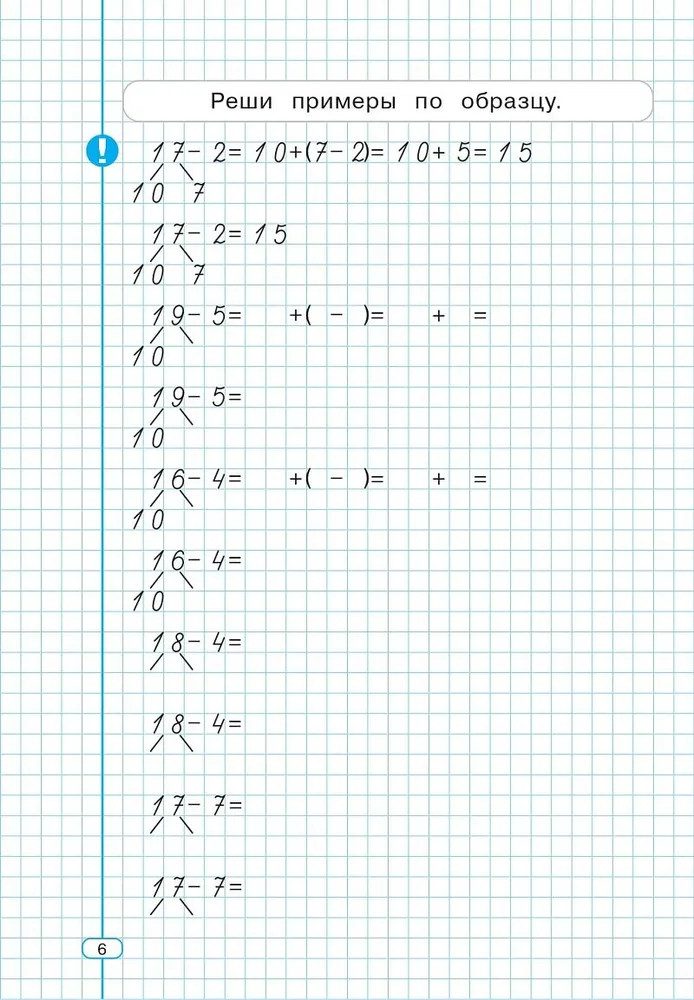 Реши примеры по образцу.
! 17 - 2 = 10 + (7 - 2) = 10 + 5 = 15
10 7
17 - 2 = 15
10 7
19 - 5 = + ( - ) = + =
10
19 - 5 =
10
16 - 4 = + ( - ) = + =
10
16 - 4 =
10
18 - 4 =
18 - 4 =
17 - 7 =
17 - 7 =
6